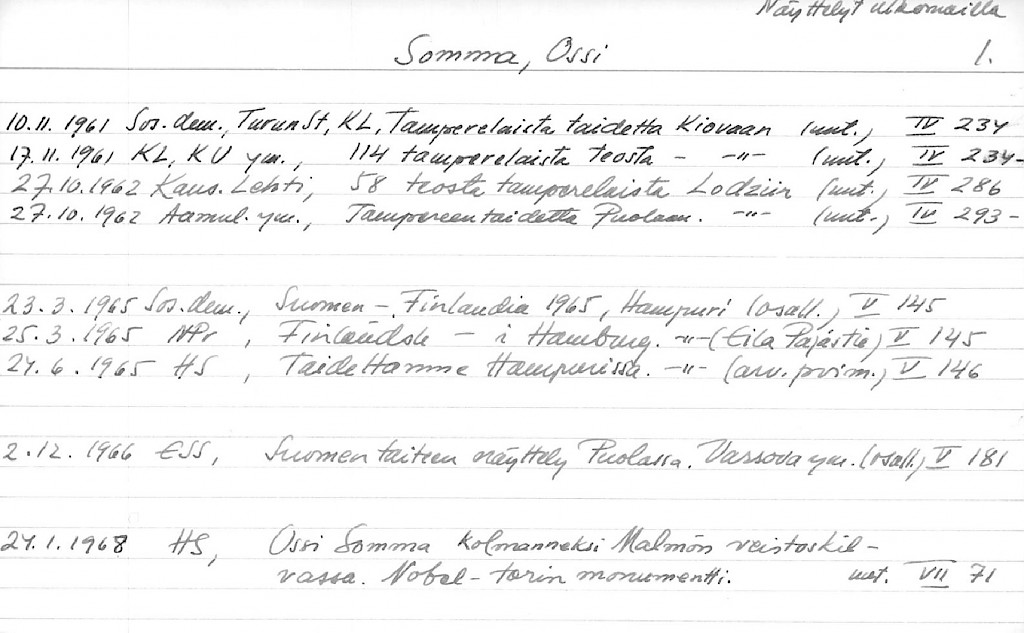 Näyttelyt ulkomailla
Somma, Ossi 1.
10.11.1961 Sos.dem., TurunSt, KL, Tamperelaista taidetta Kiovaan (mt.) IV 234
17.11.1961 KL, KU ym., 114 tamperelaista teosta - -"- (mt.) IV 234-
27.10.1962 Kans.Lehti, 58 teosta tamperelaista Lodziin (mt.) IV 286
27.10.1962 Aamul. ym., Tampereen taidetta Puolaan. -"- (mt.) IV 293-
23.3.1965 Sos.dem., Suomen - Finlandia 1965, Hampuri (osall.) V 145
25.3.1965 NPr, Finländsk - i Hamburg. -"- (Eila Pajastie) V 145
24.6.1965 HS, Taidettamme Hampurissa. -"- (arv. pvim.) V 146
2.12.1966 ESS, Suomen taiteen näyttely Puolassa. Varsova ym. (osall.) V 181
24.1.1968 HS, Ossi Somma kolmanneksi Malmön veistoskil-
vassa. Nobel-torin monumentti. mt. VII 71